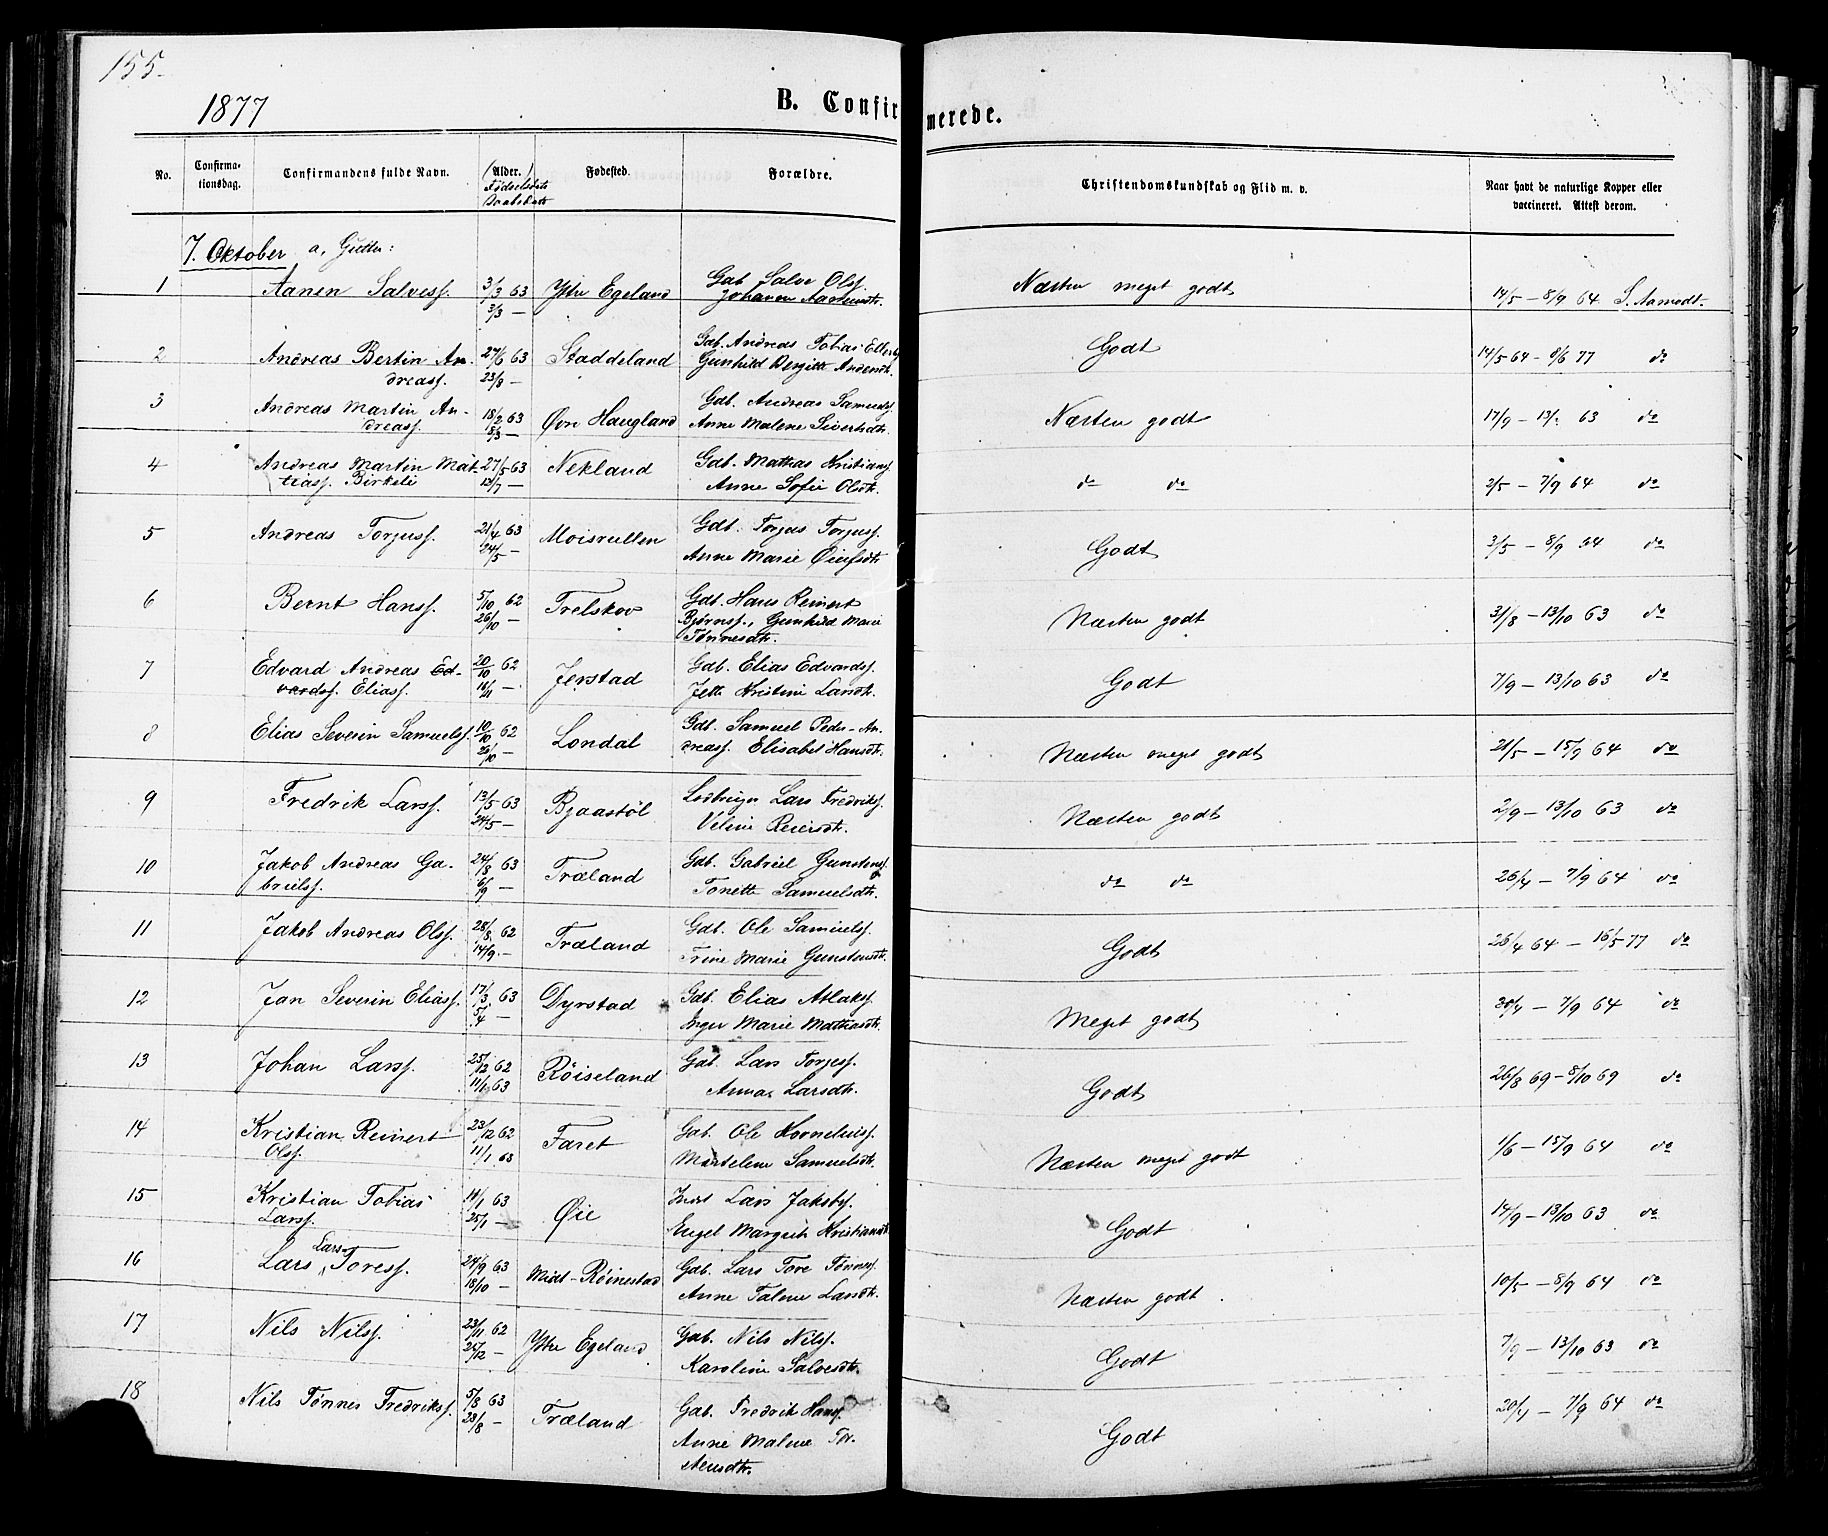 155.
1877
B. Confirmerede.
No. Confirmationsdag. Confirmandens fulde Navn. (Alder.) Fødselsdato Daabsdato Fødested. Forældre. Christendomskundskab og Flid m. v. Naar havt de naturlige Kopper eller vaccineret. Attest derom.
7. Oktober a, Gutter:
1 Aanen Salvess. 3/3 63 Ytre Egeland Gab. Salve Olss. Næsten meget godt 14/5 – 8/9 64 S. Aamodt.
Johanne
2 Andreas Bertin An- 27/6 63 Staddeland Gdb. Andreas Tobias Godt 14/5 64 – 8/6 77 do
dreass. 23/8 – Gunhild Bergitte
3 Andreas Martin An- 18/2 63 Øvre Haugland Gdb. Andreas Samuelss. Næsten godt 17/9 – 13/ 63 do
dreass. 8/3 – Anne Malene Sivertsdtr.
4 Andreas Martin Mat- 27/5 63 Nekland Gdb. Mathias Kristianss. do do 2/5 – 7/9 64 do
tiass. Birkeli 12/7 – Anne Sofie Olsdtr.
5 Andreas Torjuss. 21/4 63 Moisrullen Gdb. Torjus Torjuss. Godt 3/5 – 8/9 64 do
24/5 – Anne Marie
6 Bernt Hanss. 5/10 62 Trelskov Gdb. Hans Reinert Næsten godt 31/8 – 13/10 63 do
26/10 – Bjørnss., Gunhild Marie
Tønnesdtr.
7 Edvard Andreas Ed- 20/10 62 Jerstad Gdb. Elias Edvardss. Godt 7/9 – 13/10 63 do
vardss. Eliass. 16/11 – Jette Kristine Larsdtr.
8 Elias Severin Samuelss. 10/10 62 Londal Gdb. Samuel Peder An- Næsten meget godt 21/5 – 15/9 64 do
dreass. Elisabet Hansdtr.
9 Fredrik Larss. 13/5 63 Bjaastøl Lars Fredrikss. Næsten godt 2/9 – 13/10 63 do
24/5 – Veline Reiersdtr.
10 Jakob Andreas Ga- 24/8 63 Træland Gdb. Gabriel Gunstenss. do do 26/4 – 7/9 64 do
brielss. 6/9 – Tonette Samuelsdtr.
11 Jakob Andreas Olss. 28/8 62 Træland Gdb. Ole Samuelss. Godt 26/4 64 – 16/5 77 do
14/9 – Trine Marie Gunstensdtr.
12 Jan Severin Eliass. 17/3 63 Dyrstad Gdb. Elias Atlakss. Meget godt 30/4 – 7/9 64 do
5/4 – Inger Marie Mathiasdtr.
13 Johan Larss. 25/12 62 Røiseland Gab. Lars Torjess. Godt 26/8 69 – 8/10 69 do
11/1 63 Anna Larsdtr.
14 Kristian Reinert 23/12 62 Faret Gab. Ole Korneliuss. Næsten meget godt 1/6 – 15/9 64 do
Olss. 11/1 63 Martelene Samuelsdtr.
15 Kristian Tobias 14/1 63 Øie Lars Jakobss. Godt 14/9 – 13/10 63 do
Larss. 25/1 – Engel Margrete Kristiansdtr.
16 Lars Lars Toress. 24/9 63 Midt-Røinestad Gab. Lars Tore Tønness. Næsten godt 10/5 – 8/9 64 do
18/10 – Anne Talene Larsdtr.
17 Nils Nilss. 23/11 62 Ytre Egeland Gab. Nils Nilss. Godt 7/9 – 13/10 63 do
26/12 – Karoline Salvesdtr.
18 Nils Tønnes Fredrikss. 5/8 63 Træland Gab. Fredrik Hanss. Godt 20/4 – 7/9 64 do
23/8 – Anne Malene Tor-